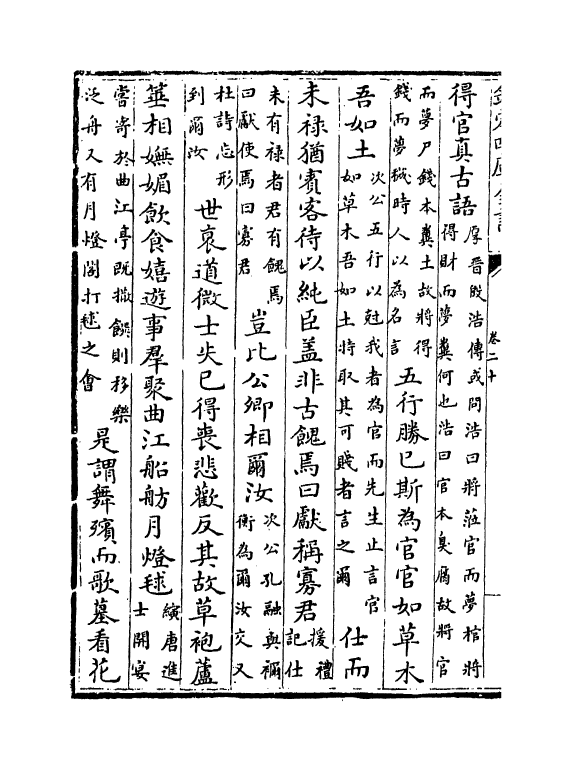 欽定四庫全書
卷二十
得官真古語
厚晉殷浩傳或問浩曰將蒞官而夢棺將
得財而夢糞何也浩曰官本臭腐故將官
而夢尸錢本糞土故將得
錢而夢穢時人以為名言
五行勝已斯為官官如草木
吾如土
次公五行以尅我者為官而先生止言官
如草木吾如土特取其可賤者言之爾
仕而
未禄猶賓客待以純臣盖非古餽焉曰獻稱寡君
援禮
記仕
未有禄者君有餽焉
曰獻使焉曰寡君
豈比公卿相爾汝
次公孔融與禰
衡為爾汝交又
杜詩忘形
到爾汝
世衰道微士失已得喪悲歡反其故草袍蘆
箠相嫵媚飲食嬉遊事羣聚曲江船舫月燈毬
縯唐進
士開宴
嘗寄於曲江亭既撤饌則移樂
泛舟又有月燈閣打毬之會
是謂舞殯而歌墓看花